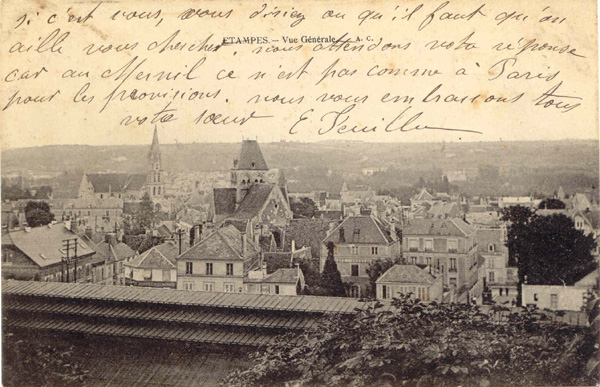 si c'est vous, vous disiez ou qu'il faut qu'on
aille vous chercher. nous attendons votre réponse
ETAMPES. — Vue Générale — A. C.
car au Mesnil ce n'est pas comme à Paris
pour les provisions. nous vous embrassons tous
votre sœur E Feuille